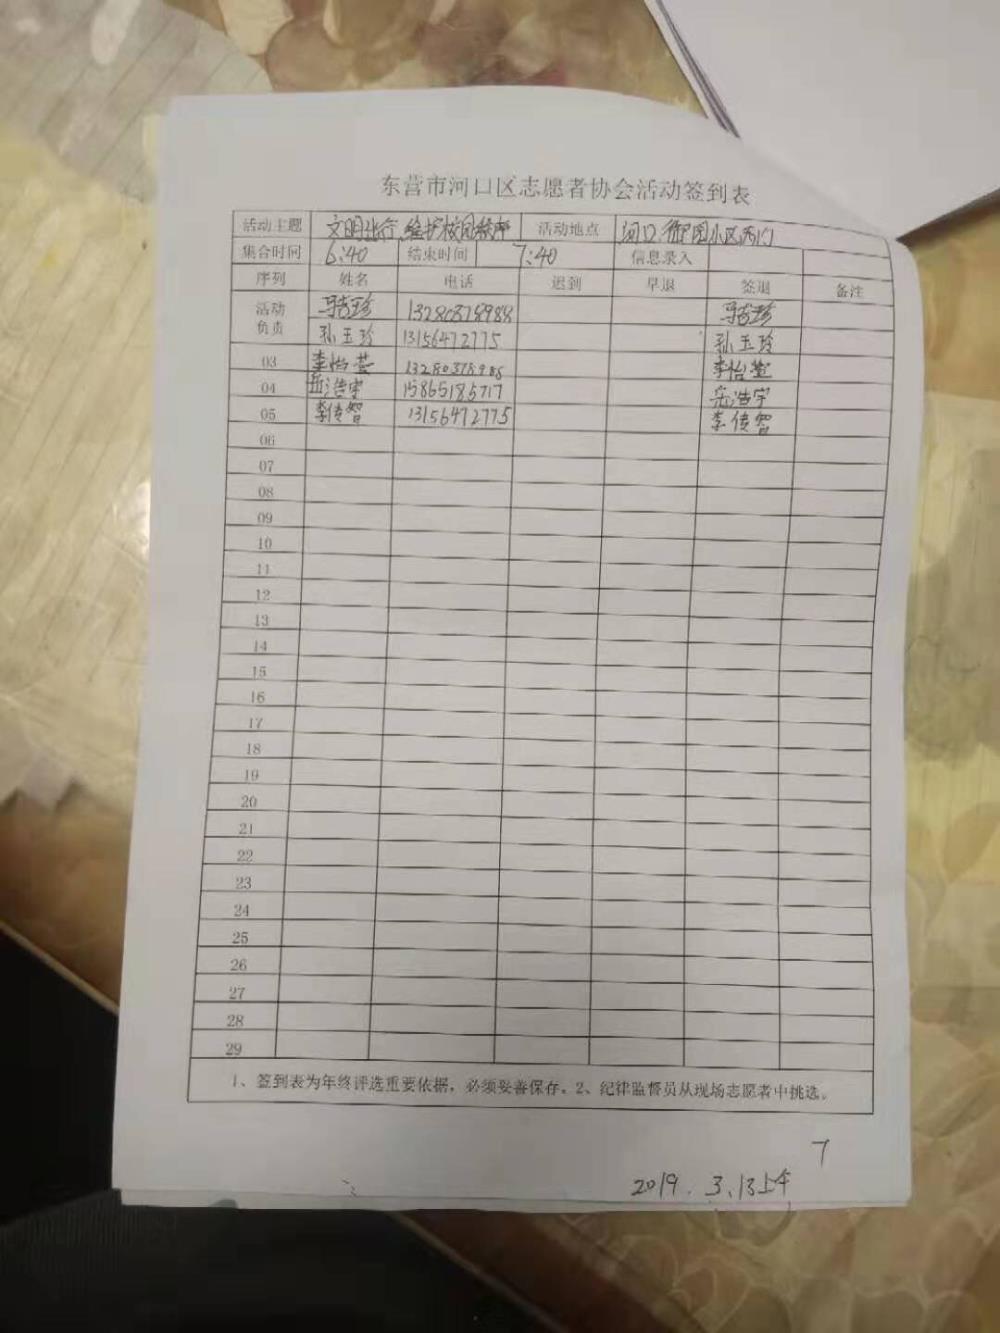 东营市河口区志愿者协会活动签到表
活动主题 文明出行,维护校园秩序 活动地点 河口 小区西门
集合时间 6:40 结束时间 7:40 信息录入
序列 姓名 电话 迟到 早退 签退 备注
活动负责 马吉珍 13280378988 马吉珍
孙玉玲 13156472775 孙玉玲
03 李怡萱 13280378988 李怡萱
04 岳浩宇 15865185717 岳浩宇
05 李传智 13156472775 李传智
06
07
08
09
10
11
12
13
14
15
16
17
18
19
20
21
22
23
24
25
26
27
28
29
1、签到表为年终评选重要依据，必须妥善保存。2、纪律监督员从现场志愿者中挑选。
7
2019.3.13上午